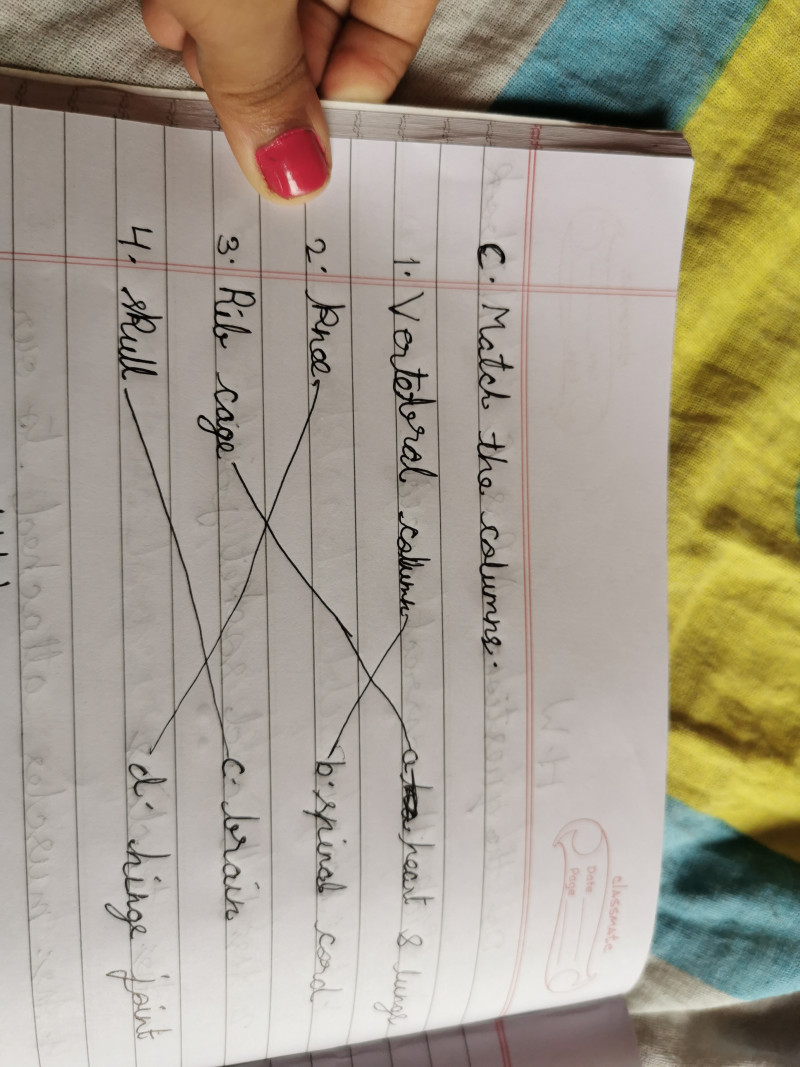 classmate
Date
Page
C. Match the columns.
1. Vertebral column a. heart & lungs
2. Knee b. spinal cord
3. Rib cage c. brain
4. skull d. hinge joint